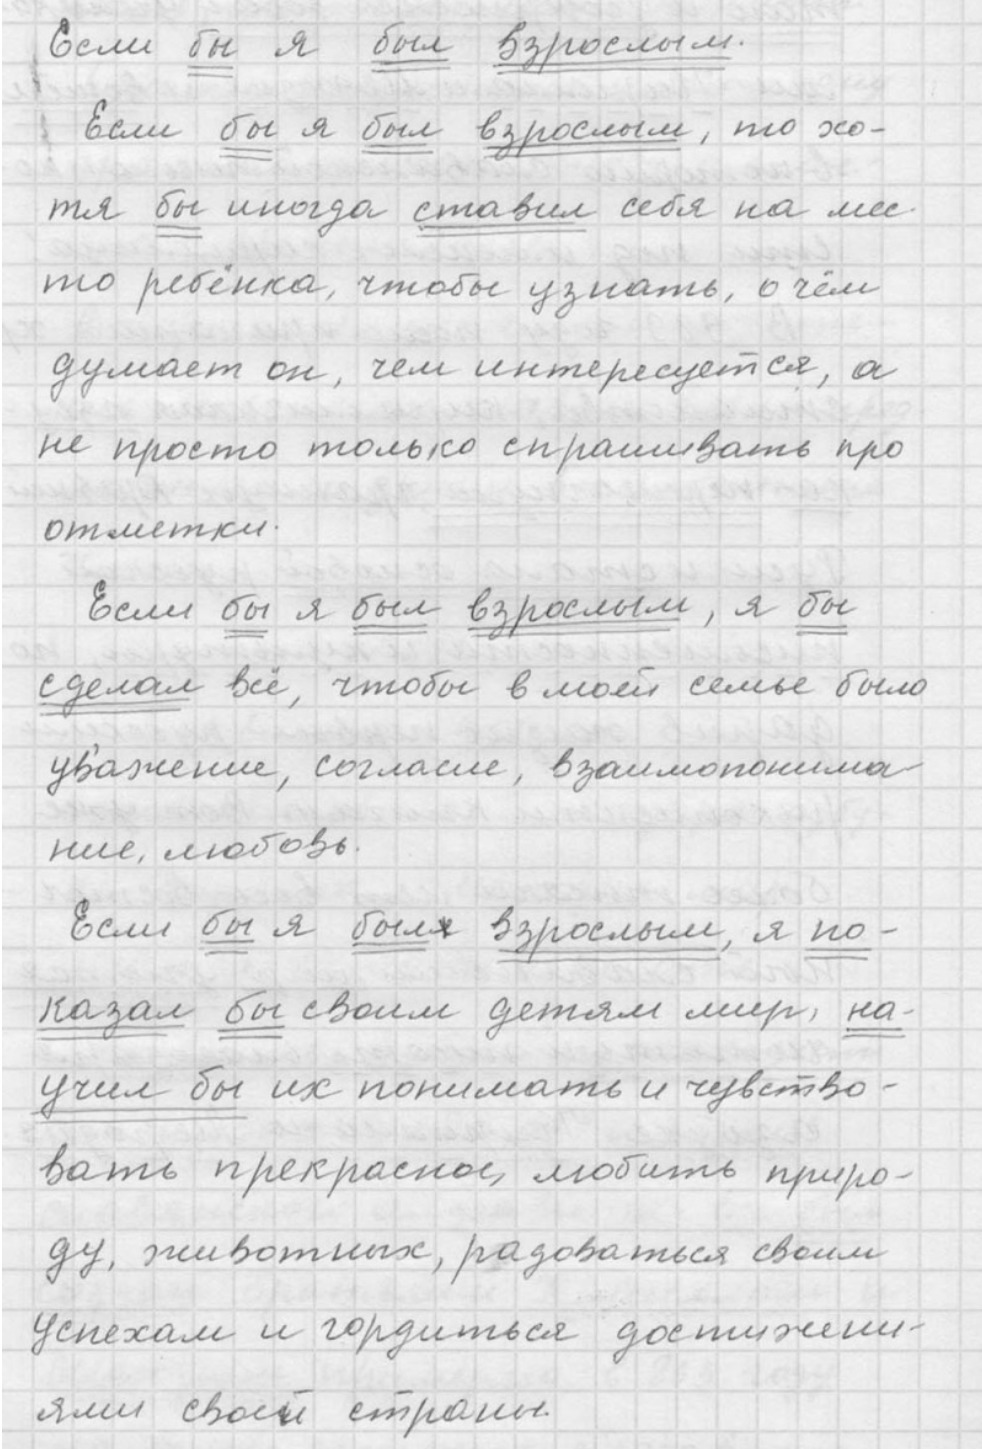 Если бы я был взрослым.
Если бы я был взрослым, то хо-
тя бы иногда ставил себя на мес
то ребёнка, чтобы узнать, о чём
думает он, чем интересуется, а
не просто только спрашивать про
отметки.
Если бы я был взрослым, я бы
сделал всё, чтобы в моей семье было
уважение, согласие, взаимопонима-
ние, любовь.
Если бы я был взрослым, я по-
казал бы своим детям мир, на-
учил бы их понимать и чувство-
вать прекрасное, любить приро-
ду, животных, радоваться своим
успехам и гордиться достижени-
ями своей страны.